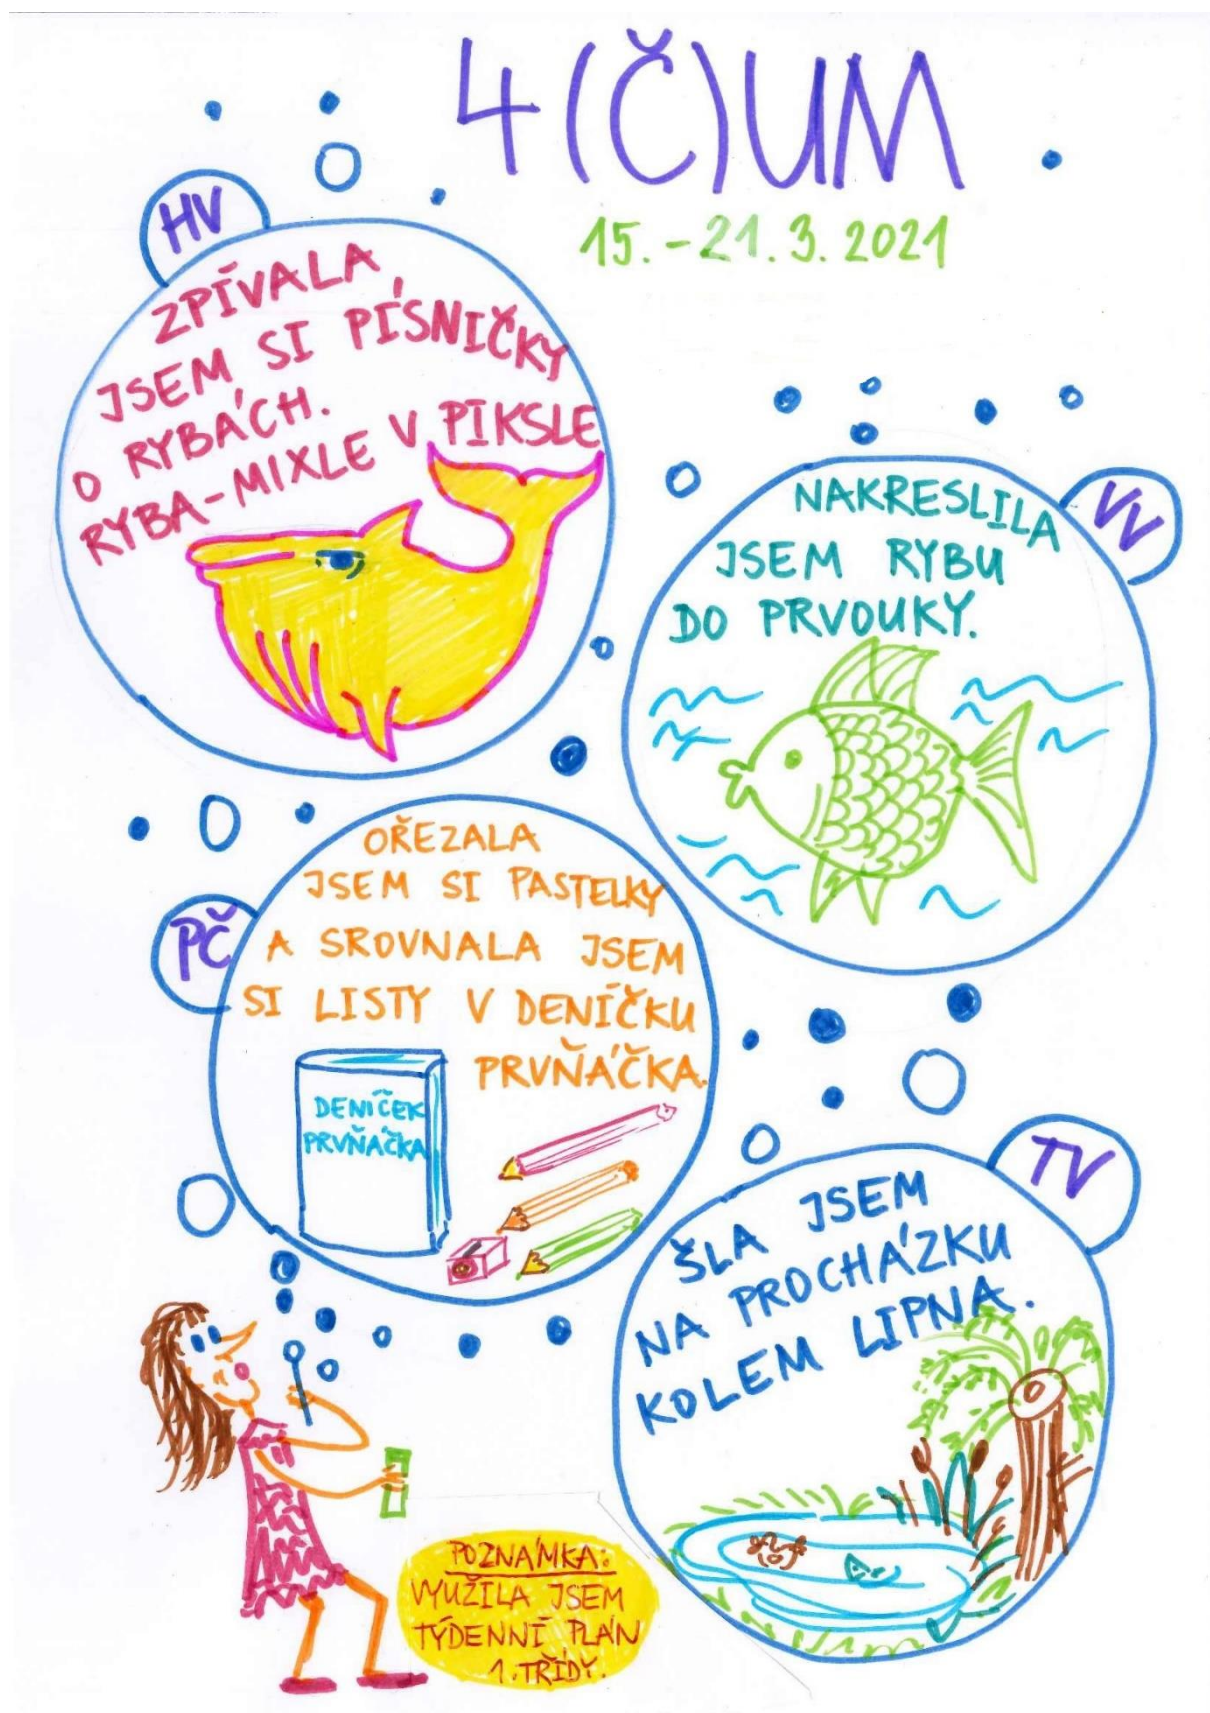 4(Č)UM
15.-21.3.2021
HV
ZPÍVALA
JSEM SI PÍSNIČKY
O RYBÁCH.
RYBA-MIXLE V PIKSLE
VV
NAKRESLILA
JSEM RYBU
DO PRVOUKY.
PČ
OŘEZALA
JSEM SI PASTELKY
A SROVNALA JSEM
SI LISTY V DENÍČKU
PRVŇÁČKA.
DENÍČEK
PRVŇÁČKA
TV
ŠLA JSEM
NA PROCHÁZKU
KOLEM LIPNA.
POZNÁMKA:
VYUŽILA JSEM
TÝDENNÍ PLÁN
1. TŘÍDY.